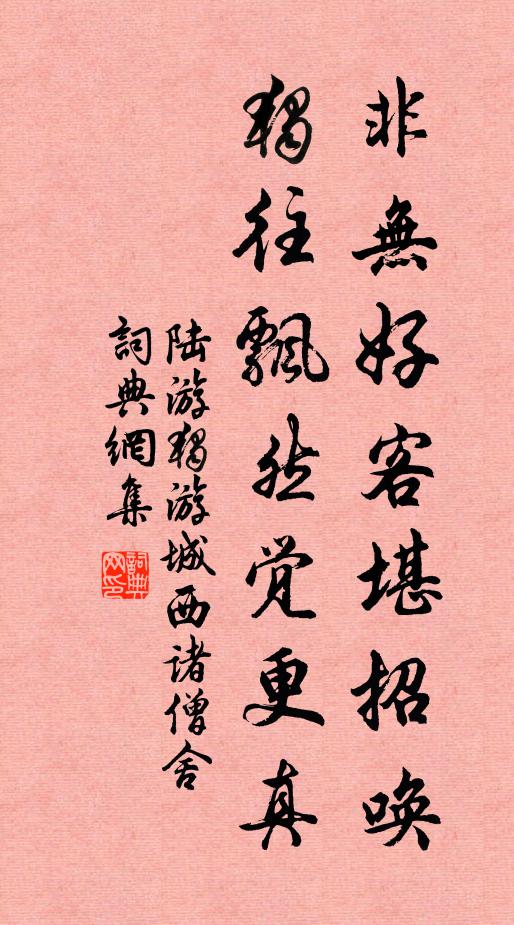 非無好客堪招唤
獨往飄然覺更真
陆游獨游城西诸僧舍
詞典網集
詞典網印